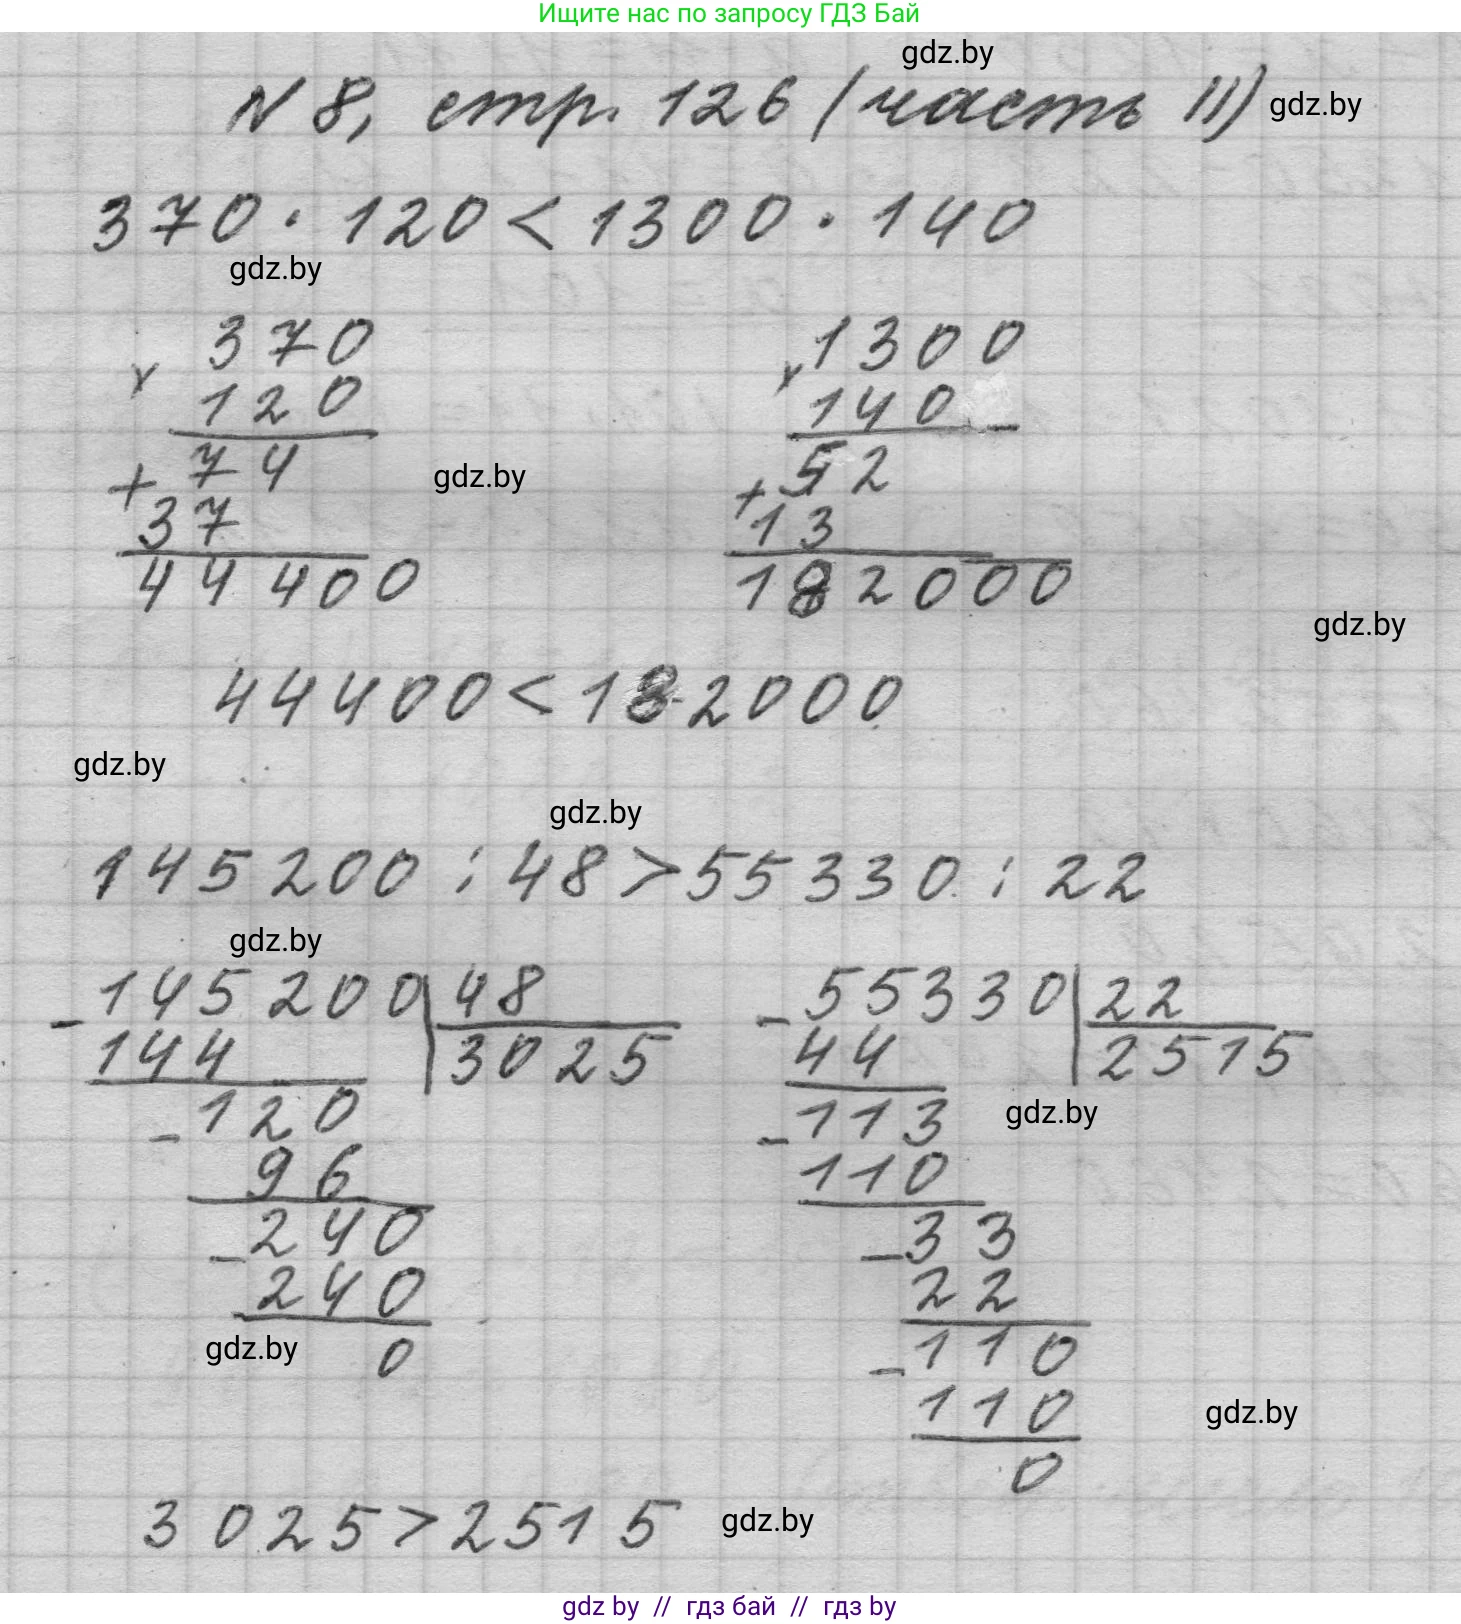 Ищите нас по запросу ГДЗ Бай
gdz.by
N 8, стр. 126 (часть II) gdz.by
370 · 120 < 1300 · 140
gdz.by
370 1300
× 120 × 140
74 52
gdz.by
+ 37 + 13
44400 182000
gdz.by
44400 < 182000
gdz.by
gdz.by
145200 : 48 > 55330 : 22
gdz.by
- 145200 | 48 - 55330 | 22
144 3025 44 2515
- 120 - 113
gdz.by
96 110
- 240 - 33
240 22
gdz.by
0 - 110
110
gdz.by
0
3025 > 2515 gdz.by
gdz by // гдз бай // гдз by